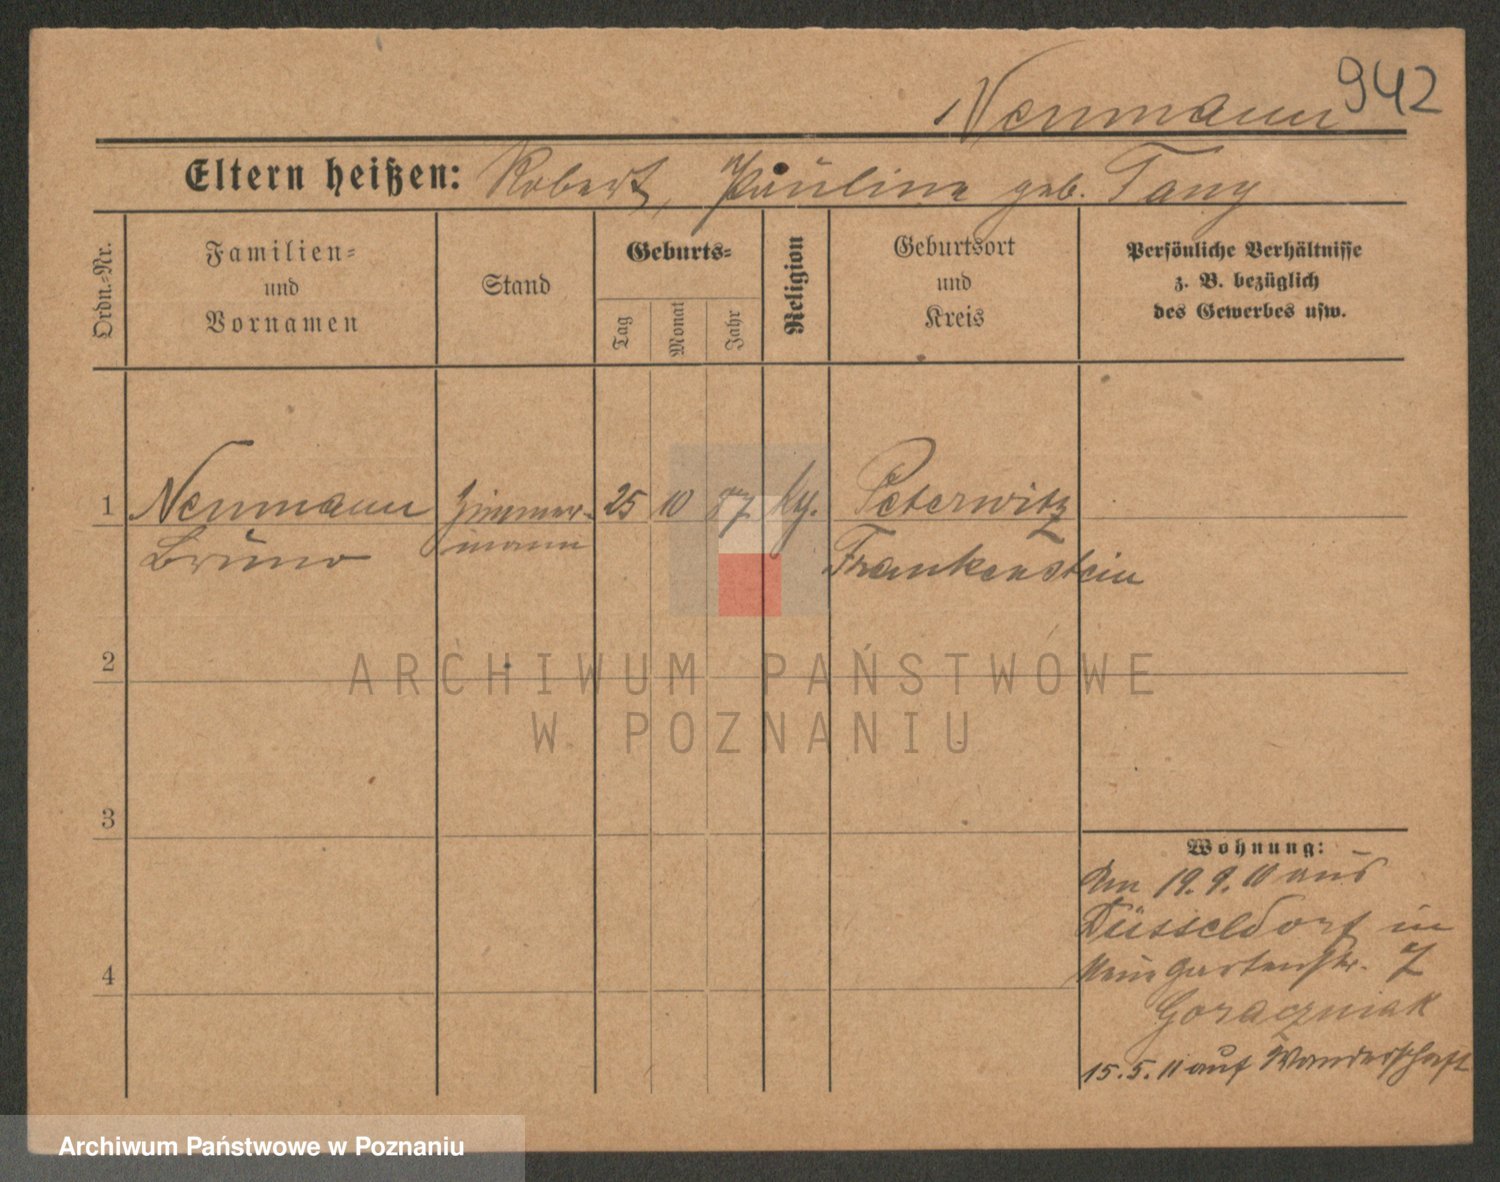 942
Neumann
Eltern heißen: Robert, Pauline geb. Tany
Ordn.-Nr.
Familien-
und
Vornamen
Stand
Geburts-
Tag
Monat
Jahr
Religion
Geburtsort
und
Kreis
Persönliche Verhältnisse
z. B. bezüglich
des Gewerbes usw.
1 Neumann Zimmer- 25 10 87 kg. Peterwitz
Bruno mann Frankenstein
2
3
4
Wohnung:
Am 19.9.10 aus
Düsseldorf in
Weingartenstr. 7
Goraczniak
15.5.11 auf Wanderschaft
ARCHIWUM PAŃSTWOWE
W POZNANIU
Archiwum Państwowe w Poznaniu